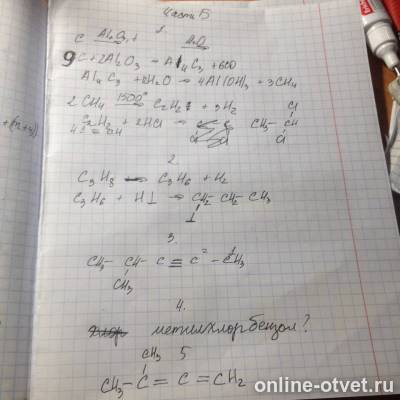 Часть Б
1.
C Al₂O₃, t H₂O
9C + 2Al₂O₃ → Al₄C₃ + 6CO
Al₄C₃ + 12H₂O → 4Al(OH)₃ + 3CH₄
2CH₄ 1500° C₂H₂ + 3H₂ Cl
C₂H₂ + 2HCl → CH₃ – CH
HC ≡ CH Cl
2.
C₃H₈ → C₃H₆ + H₂
C₃H₆ + HI → CH₂ CH₂ CH₃
I
3.
CH₃ – CH – C ≡ C – CH₃
CH₃
4.
метилхлорбензол?
CH₃ 5
CH₃ – C = C = CH₂
online-otvet.ru